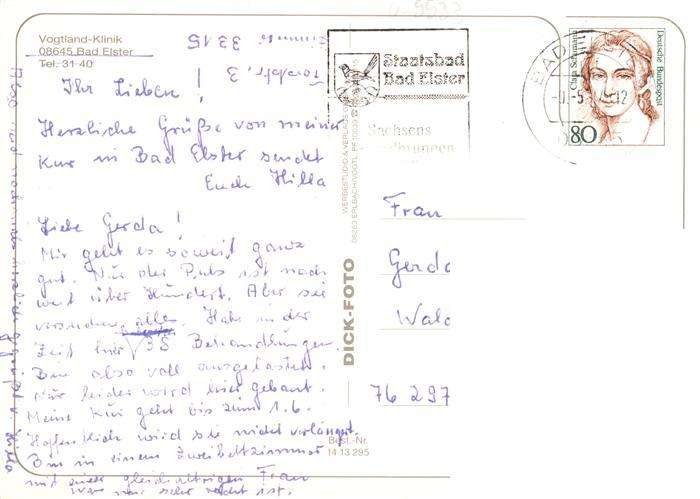 Vogtland-Klinik
08645 Bad Elster
Tel. 31 40
Zimmer 33 15
Ihr Lieben!
Herzliche Grüße von meiner
Kur in Bad Elster sendet
Euch Hilla
Liebe Gerda!
Mir geht es soweit ganz
gut. Nur der Puls ist noch
weit über Hundert. Aber sie
versuchen alles. Hab in der
Zeit hier 38 Behandlungen.
Bin also voll ausgelastet.
Nur leider wird hier gebaut.
Meine Kur geht bis zum 1.6.
Hoffentlich wird sie nicht verlängert.
Bin in einem Zweibettzimmer
mit einer gleichaltrigen Frau
was mir sehr recht ist.
Also noch mals herzliche Grüße v. Hilla
DICK-FOTO
WERBESTUDIO & VERLAG
08265 ERLBACH/VOGTL.
Best.-Nr.
14 13 295
Staatsbad
Bad Elster
Sachsens
BAD
Clara Schumann
Deutsche Bundespost
80
Frau
Gerda
Wald
76 297